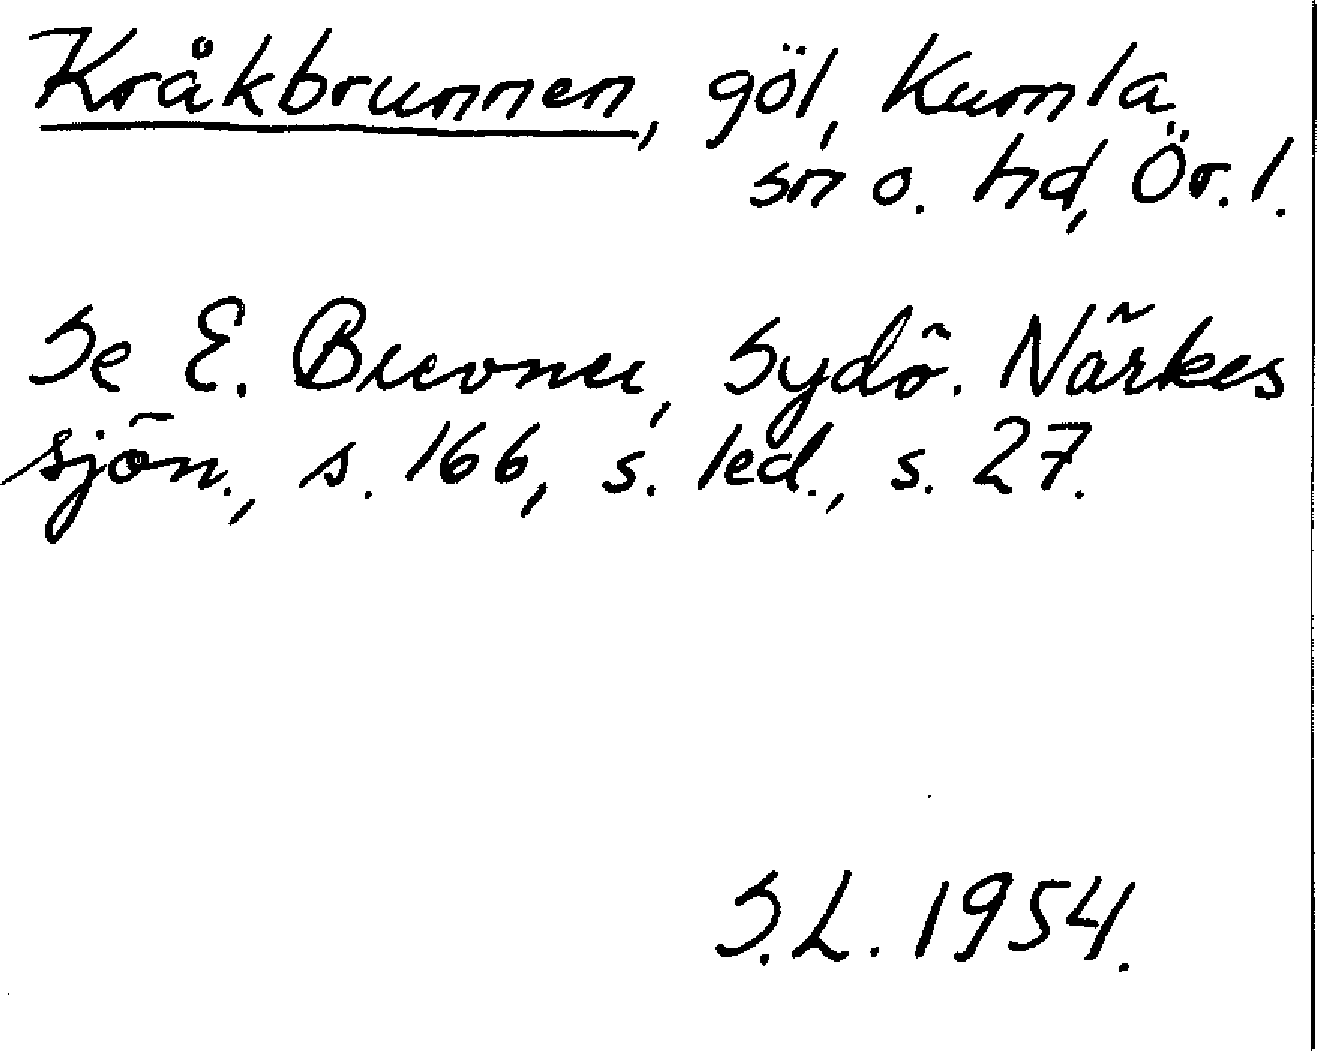 Kråkbrunnen, göl, Kumla
sn o. hd, Ör. l.
Se E. Brevner, Sydö. Närkes
sjön., s. 166, s. led., s. 27.
S.L. 1954.